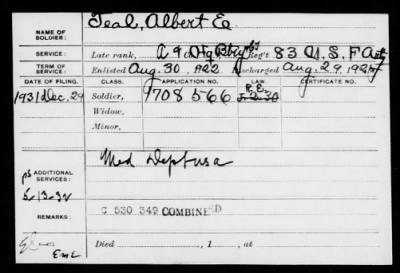 NAME OF SOLDIER: Teal, Albert E.
SERVICE: Late rank, Btry Reg't 83 U.S. F Arty
TERM OF SERVICE: Enlisted Aug. 30, 1922 Discharged Aug. 29, 1925
DATE OF FILING. CLASS. APPLICATION NO. LAW. CERTIFICATE NO.
1931 Dec. 29 Soldier, 1708 566
Widow,
Minor,
Med Dept USA
ADDITIONAL SERVICES:
5-13-32
REMARKS: C 530 349 COMBINED
Died , 1 , at